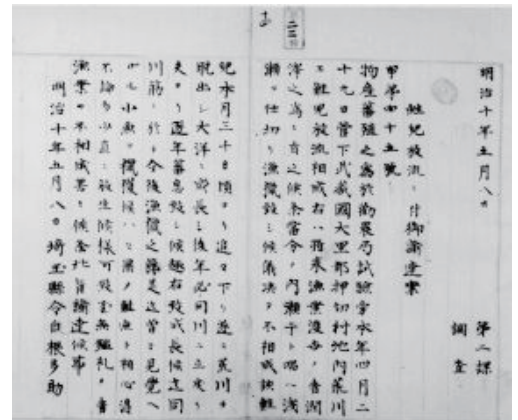 明治十年五月八日
第二課
調査
鮭児放流ニ付御諭達案
甲第四十五號
物産蕃殖之為於勧農局試験當本年四月二
十九日管下武蔵國大里郡押切村地内荒川
ニ鮭児放流相成右ハ将来漁業渡世ノ者潤
澤之為ニ有之候条當今ノ内瀬干ト唱ヘ浅
瀬ヲ仕切リ漁獵致シ候儀決テ不相成該鮭
児本月三十日頃ヨリ追々下リ遂ニ荒川ヲ
脱出シ大洋ニ成長シ後年必同川ニ立戻リ
夫ヨリ逐年蕃息致シ候趣右致成長候迄同
川筋ニ於テ今後漁獵之際是迄曽テ見覚ヘ
サル小魚ヲ獵獲候ハヽ則鮭魚ト相心得
不論多少直ニ放生候様可致至無鑑札ノ者
漁業不相成義ト候条此旨諭達候事
明治十年五月八日 埼玉縣令白根多助